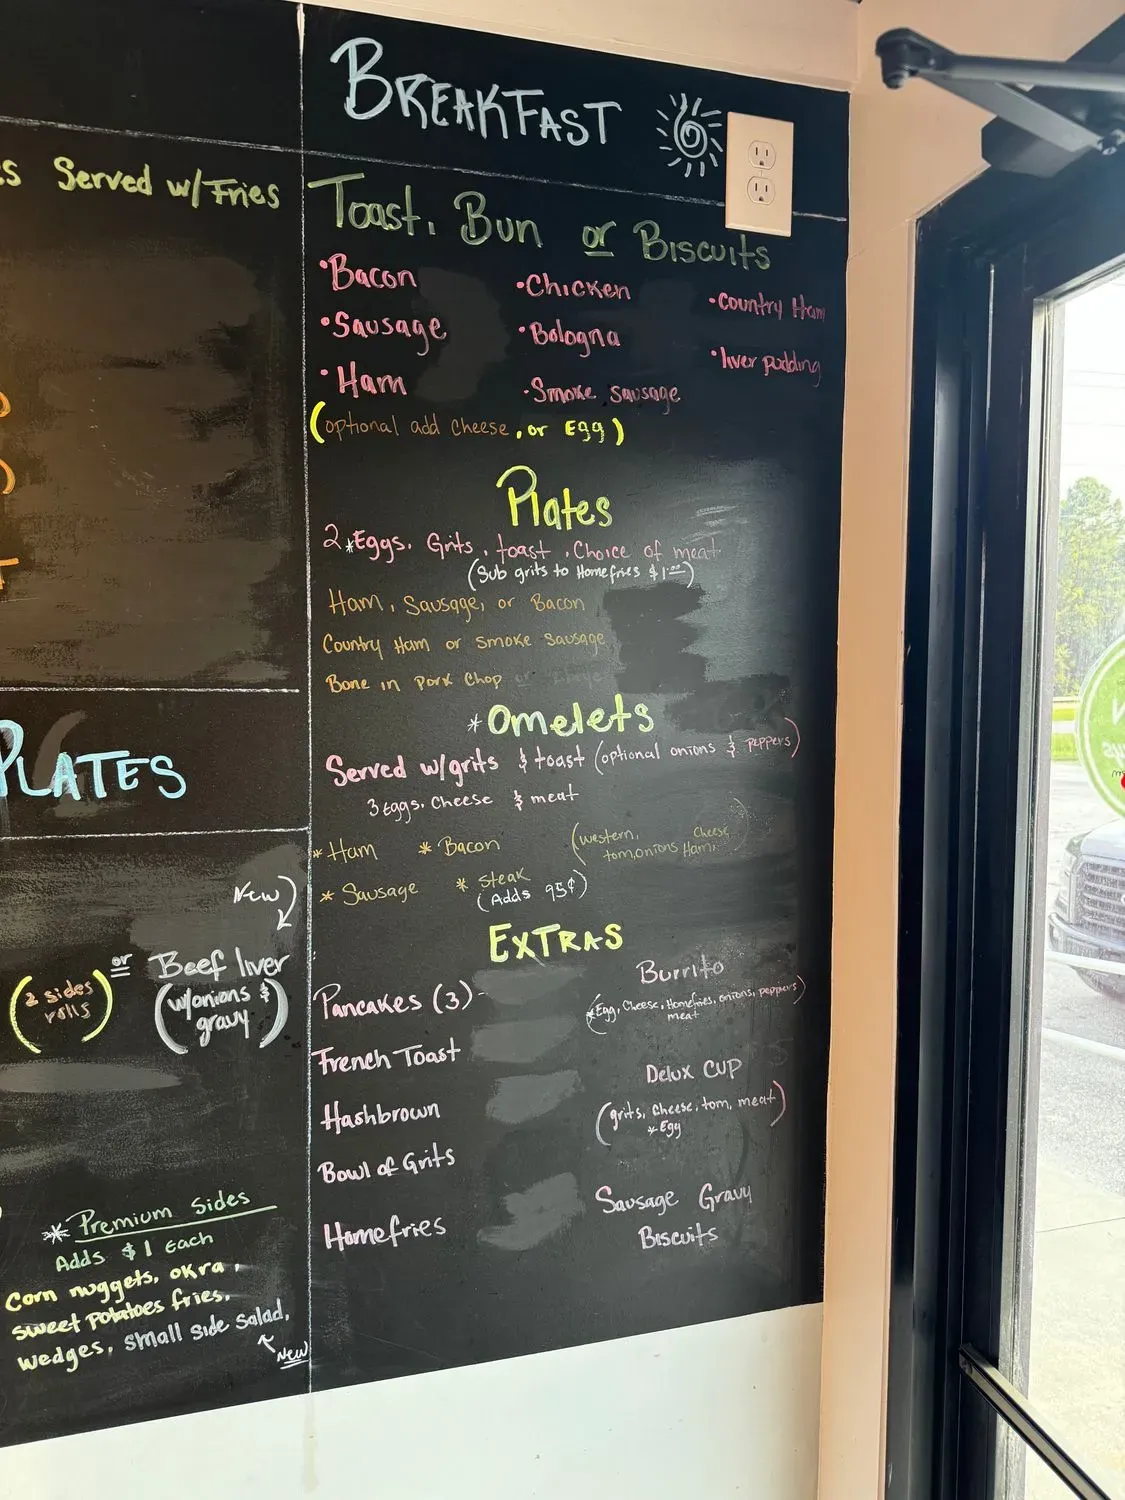 Served w/Fries
PLATES
New
2 sides
rolls
or
Beef liver
(w/onions &
gravy)
* Premium Sides
Adds $1 Each
Corn nuggets, okra,
sweet potatoes fries,
wedges, small side salad,
New
BREAKFAST
Toast, Bun or Biscuits
•Bacon •Chicken •Country Ham
•Sausage •Bologna •liver pudding
•Ham •Smoke sausage
(optional add cheese, or Egg)
Plates
2 *Eggs, Grits, toast, Choice of meat
(Sub grits to Homefries $1.00)
Ham, Sausage, or Bacon
Country Ham or Smoke Sausage
Bone in Pork Chop or
*Omelets
Served w/grits & toast (optional onions & peppers)
3 Eggs, Cheese & meat
* Ham * Bacon (western, Cheese,
tom, onions Ham)
* Sausage * Steak
(Adds 95¢)
EXTRAS
Pancakes (3)-
French Toast
Hashbrown
Bowl of Grits
Homefries
Burrito
(*Egg, Cheese, Homefries, onions, peppers)
meat
Delux CUP
(grits, cheese, tom, meat)
*Egg
Sausage Gravy
Biscuits